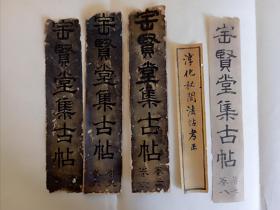 寚賢堂集古帖
寚賢堂集古帖
寚賢堂集古帖
淳化秘閣法帖考正
寚賢堂集古帖